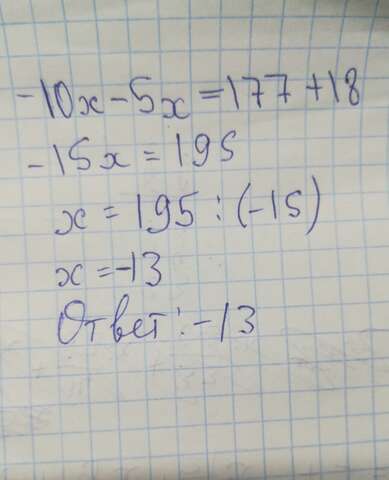 -10x-5x=177+18
-15x=195
x=195:(-15)
x=-13
Ответ:-13